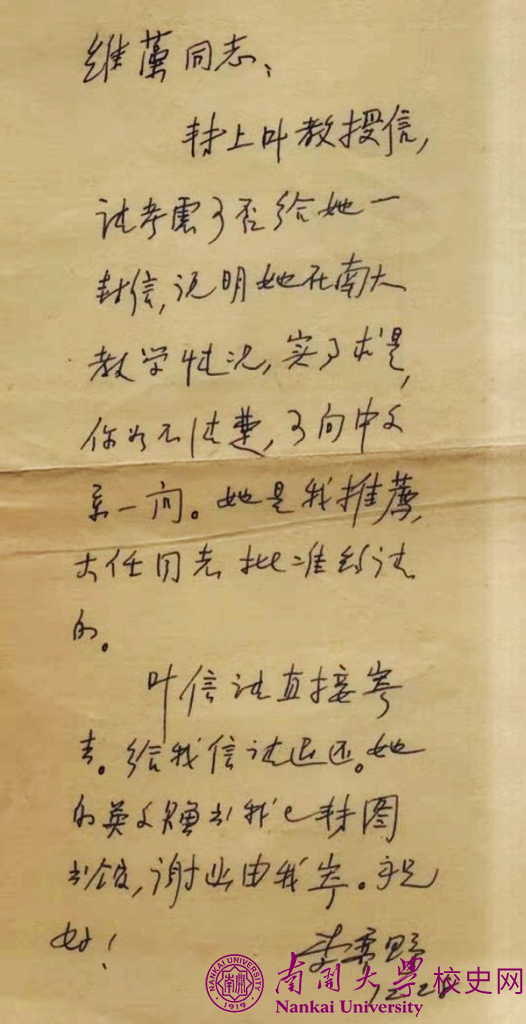 维同志:
转上叶教授信,
请考虑可否给她一
封信,说明她在南大
教学情况,实事求是,
你如不清楚,可向中文
系一问。她是我推荐,
大任同志批准约请
的。
叶信请直接寄
去。给我信请退还。她
的英文赠书我已转图
书馆,谢函由我寄。祝
好!
李霁野
NANKAI UNIVERSITY
1919
南開大學校史网
Nankai University